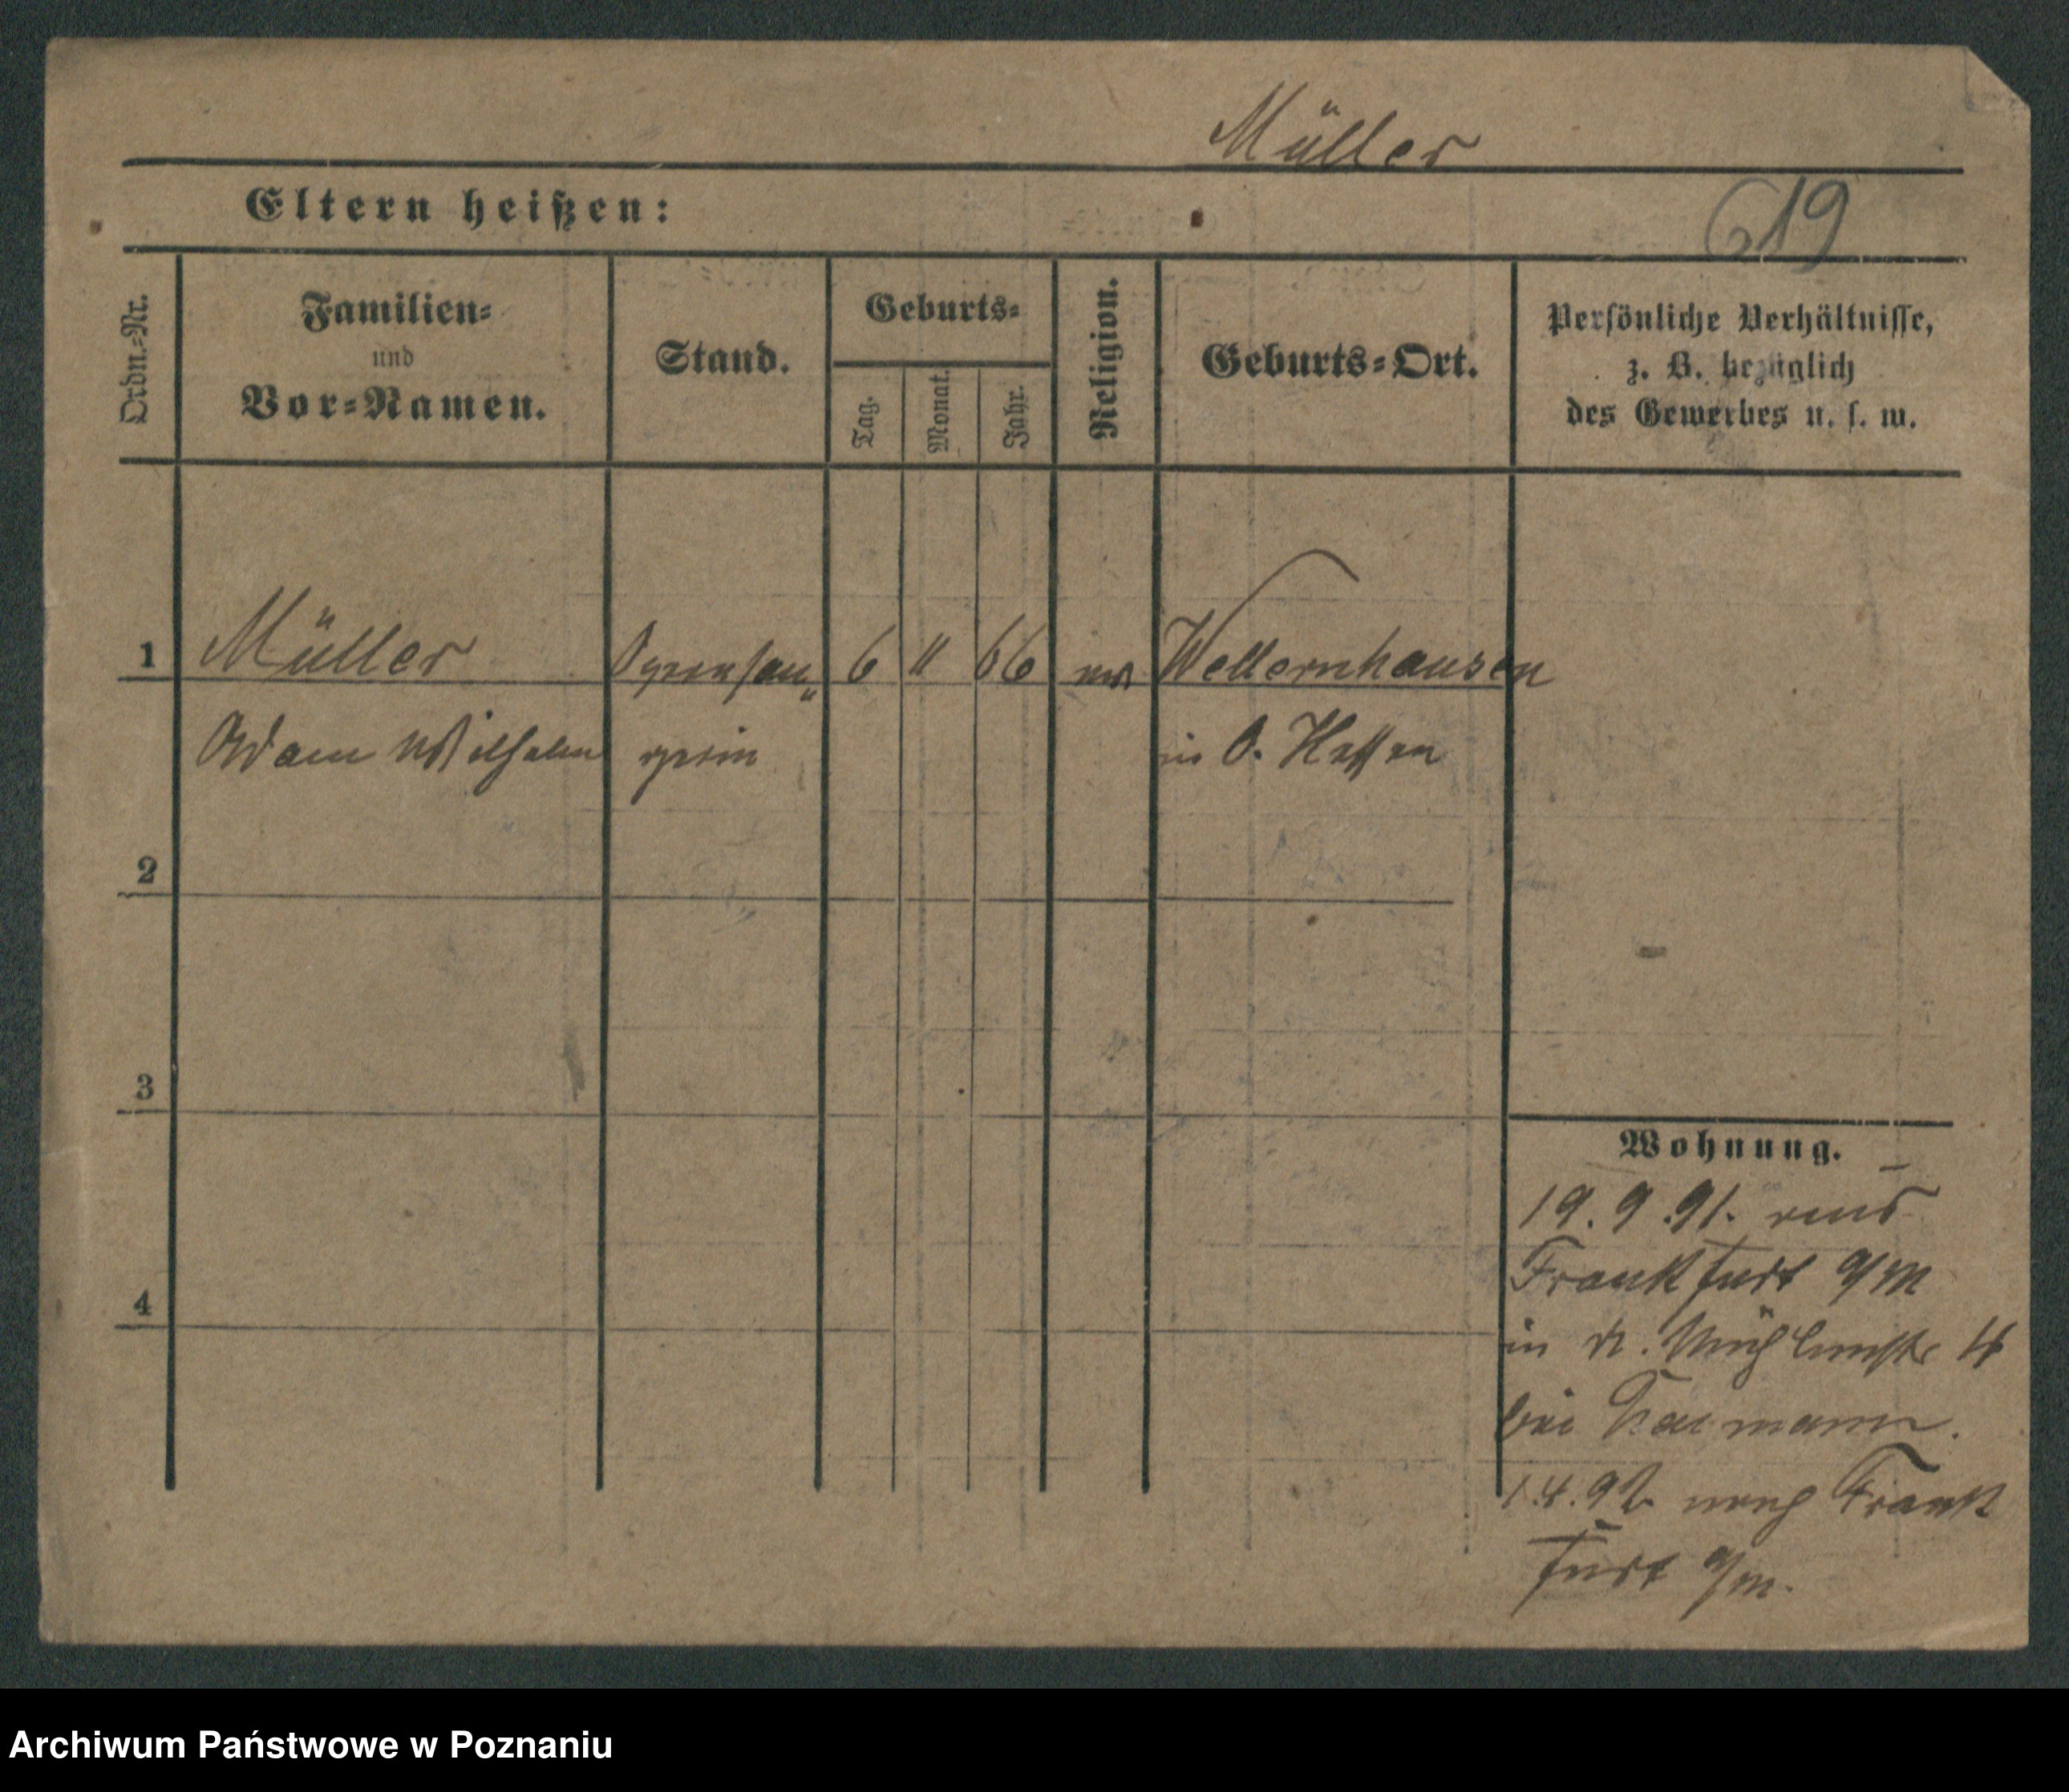 Müller
Eltern heißen:
619
Ordn.-Nr.
Familien-
und
Vor-Namen.
Stand.
Geburts-
Tag.
Monat.
Jahr.
Religion.
Geburts-Ort.
Persönliche Verhältnisse,
z. B. bezüglich
des Gewerbes u. s. w.
1 Müller 6 11 66 Wellernhausen
Adam Wilhelm in O. Hessen
2
3
4
Wohnung.
19.9.91. aus
Frankfurt a/M
in kl. Mühlenstr
bei
1.4.92 nach Frank
furt a/M.
Archiwum Państwowe w Poznaniu